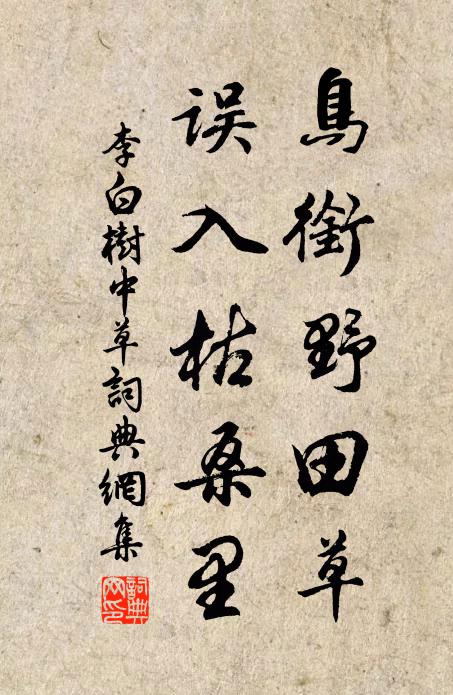 鳥銜野田草
误入枯桑里
李白樹中草詞典網集
詞典网印